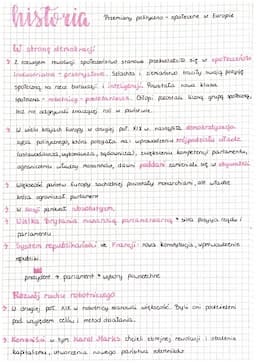 historia
Przemiany polityczno - społeczne w Europie
W stronę demokracji
Z rozwojem rewolucji społeczeństwo stanowe przekształciło się w społeczeństwo
industrialno - przemysłowe. Szlachta i ziemiaństwo traciły swoją pozycję
społeczną na rzecz burżuazji i inteligencji. Powstała nowa klasa
społeczna - robotnicy - proletariat. Chłopi pozostali liczną grupą społeczną,
lecz nie odgrywali znaczącej roli w państwie.
W wielu krajach Europy w drugiej poł. XIX w. nastąpiła demokratyzacja
życia politycznego, która polegała na: wprowadzeniu trójpodziału władzy
(ustawodawcza, wykonawcza, sądownicza), zwiększeniu kompetencji parlamentu,
ograniczeniu władzy monarchów, dawni poddani zamieniali się w obywateli
Większość państw Europy zachodniej pozostały monarchiami, ale władzę
króla ograniczał parlament
w Rosji panował absolutyzm
Wielka Brytania monarchią parlamentarną
parlamentu
System republikański we Francji: nowa konstytucja, wprowadzenie
republiki
prezydent → parlament wybory powszechne
Rozwój ruchu robotniczego
W drugiej poł. XIX w. robotnicy stanowili większość. Byli oni podzieleni
pod względem celów i metod działania.
Komuniści w tym Karol Marks chcieli zbrojnej rewolucji i obalenia
kapitalizmu, utworzenia nowego państwa robotników